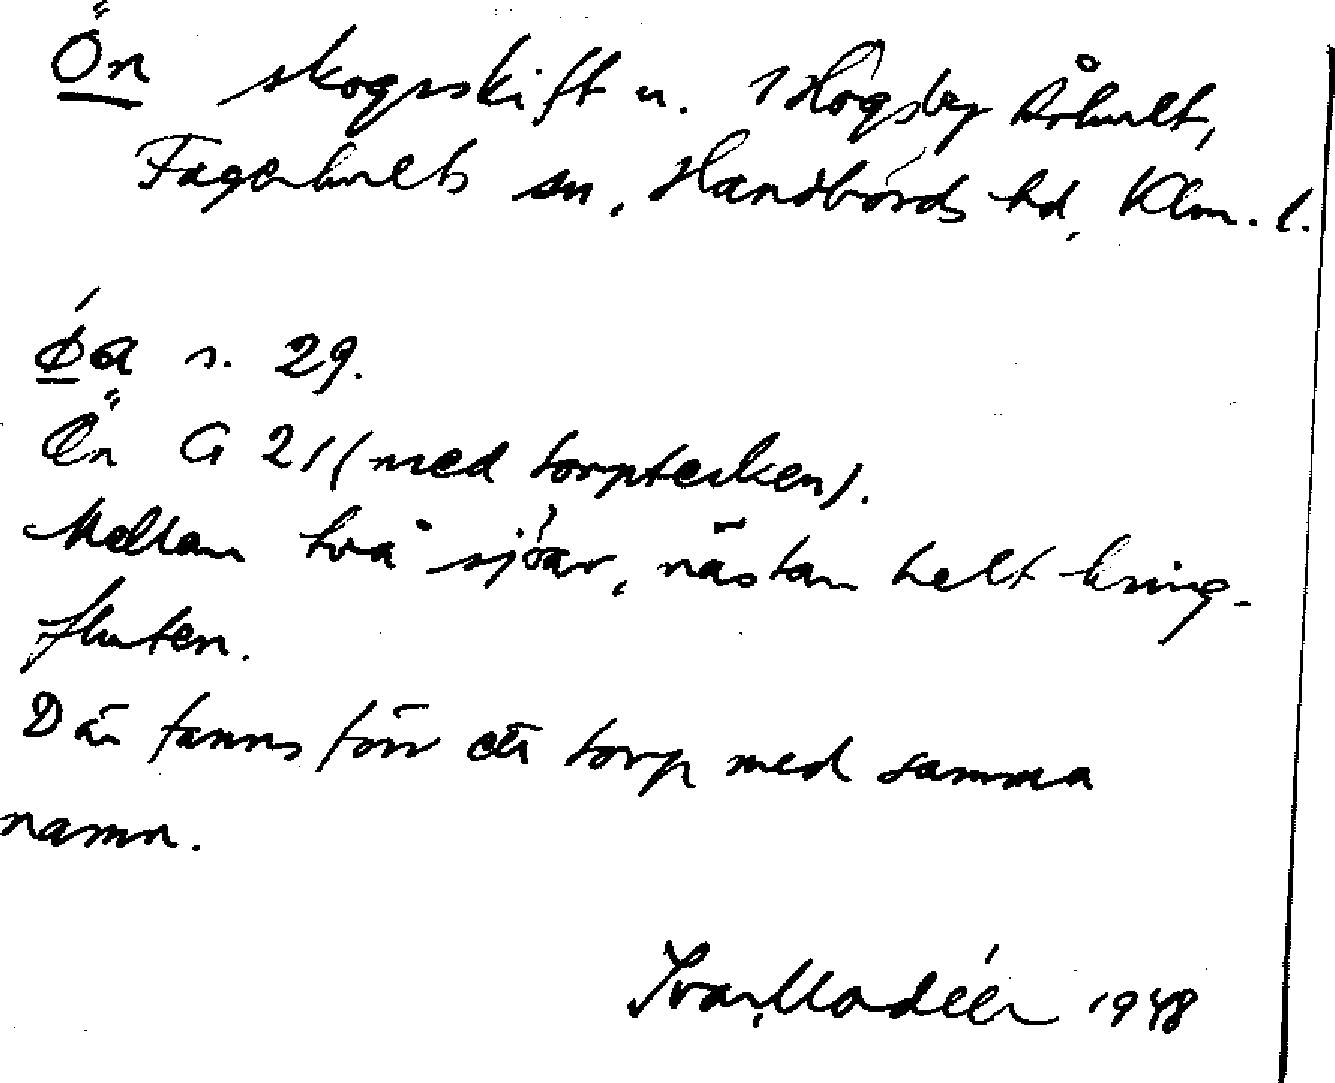 Ön skogsskift u. Högsby Århult,
Fagerhults sn, Handbörds hd, Klm. l.
s. 29.
Ön G 21 (med torptecken).
Mellan två sjöar, nästan helt kring-
fluten.
Där fanns förr ett torp med samma
namn.
Ivar Modéer 1948